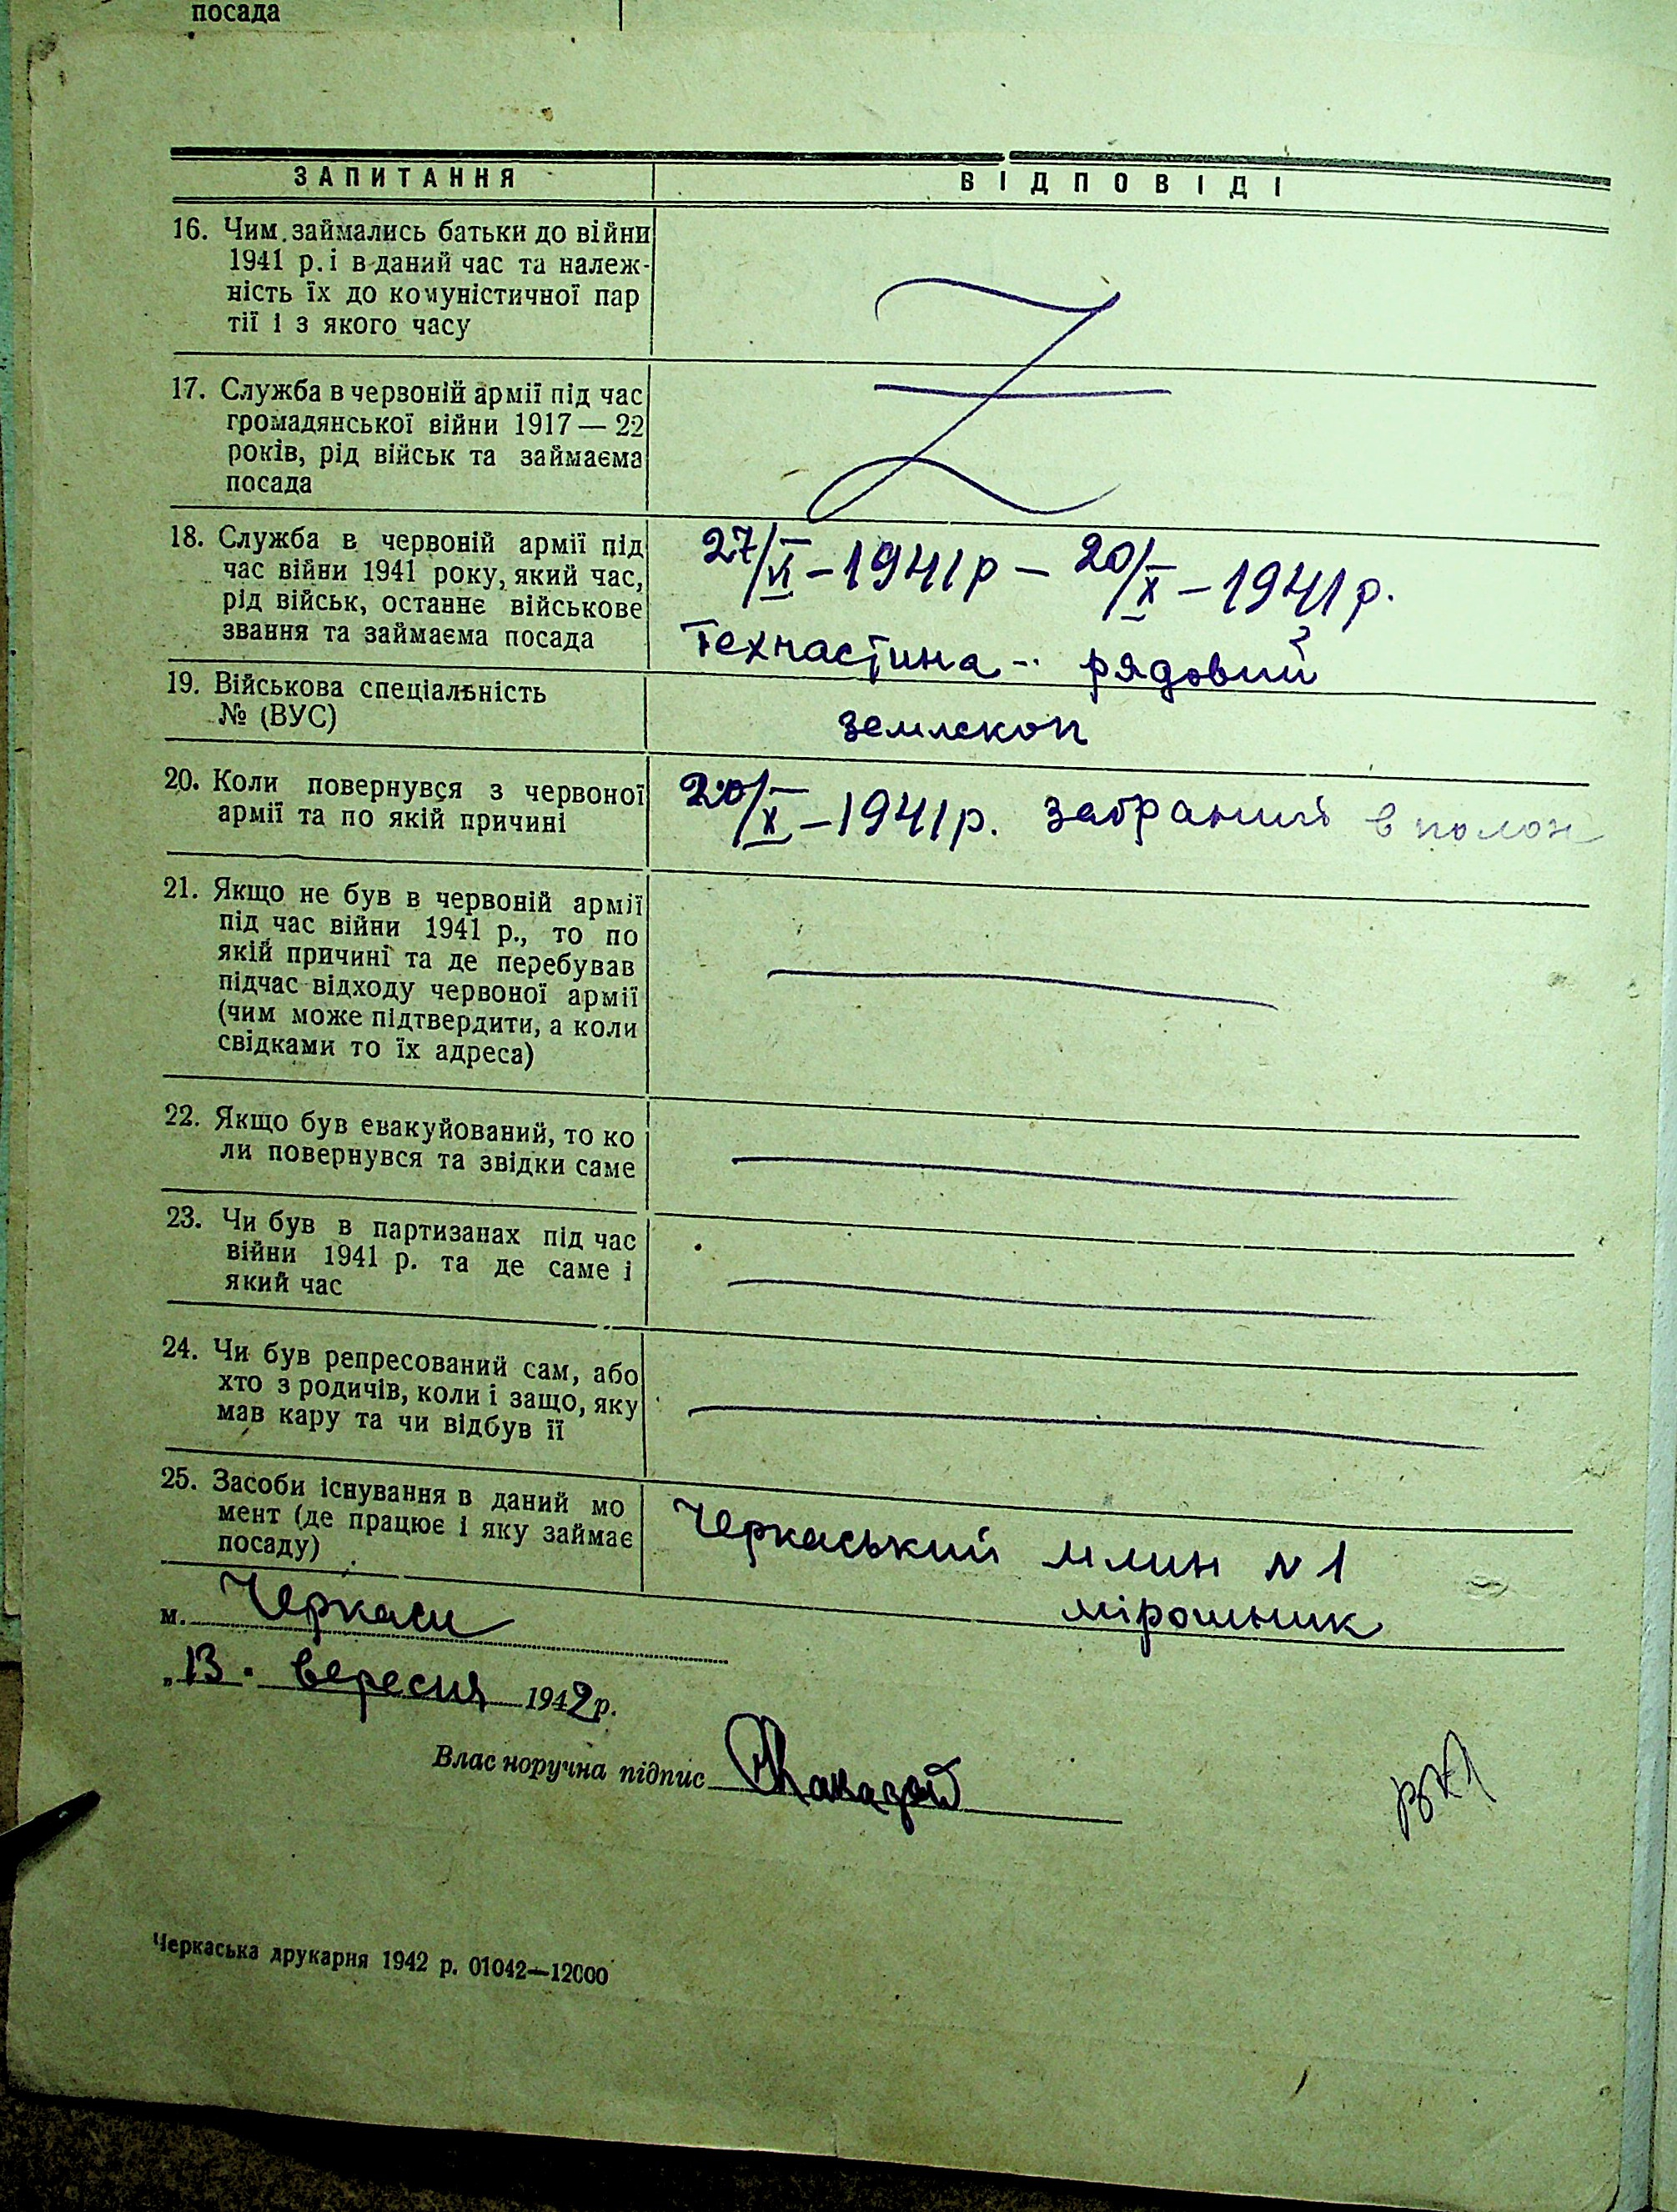 посада
ЗАПИТАННЯ
ВІДПОВІДІ
16. Чим займались батьки до війни
1941 р. і в даний час та належ-
ність їх до комуністичної пар
тії і з якого часу
17. Служба в червоній армії під час
громадянської війни 1917 — 22
років, рід військ та займаєма
посада
18. Служба в червоній армії під
час війни 1941 року, який час,
рід військ, останнє військове
звання та займаєма посада
27/VI – 1941 р – 20/X – 1941 р.
Техчастина - рядовий
19. Військова спеціальність
№ (ВУС)
землекоп
20. Коли повернувся з червоної
армії та по якій причині
20/X – 1941 р. забраний в полон
21. Якщо не був в червоній армії
під час війни 1941 р., то по
якій причині та де перебував
підчас відходу червоної армії
(чим може підтвердити, а коли
свідками то їх адреса)
22. Якщо був евакуйований, то ко
ли повернувся та звідки саме
23. Чи був в партизанах під час
війни 1941 р. та де саме і
який час
24. Чи був репресований сам, або
хто з родичів, коли і защо, яку
мав кару та чи відбув її
25. Засоби існування в даний мо
мент (де працює і яку займає
посаду)
Черкаський млин N 1
мірошник
м. Черкаси
„13. вересня 1942 р.
Влас норучна підпис
Черкаська друкарня 1942 р. 01042—12000